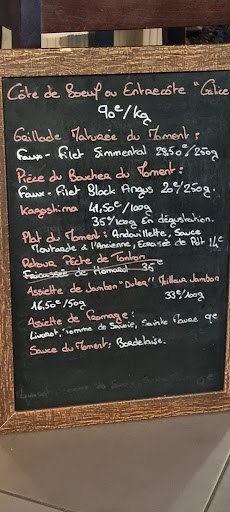 Côte de Boeuf ou Entrecôte "Galice
90€/kg
Gaillade Maturée du Moment :
Faux-Filet Simmental 28.50€/250g
Pièce du Boucher du Moment :
Faux-Filet Black Angus 20€/250g.
Kagoshima 41,50€/100g
35€/100g En dégustation.
Plat du Moment : Andouillette, Sauce
Moutarde à l'Ancienne, Ecrasée de Pdt 16€
Retour Pêche de Tonton
Fricassée de Homard 35€
Assiette de Jambon "Duler" Meilleur Jambon
16.50€/50g 33€/100g
Assiette de Fromage :
Livarot, Tomme de Savoie, Sainte Maure 9€
Sauce du Moment : Bordelaise.